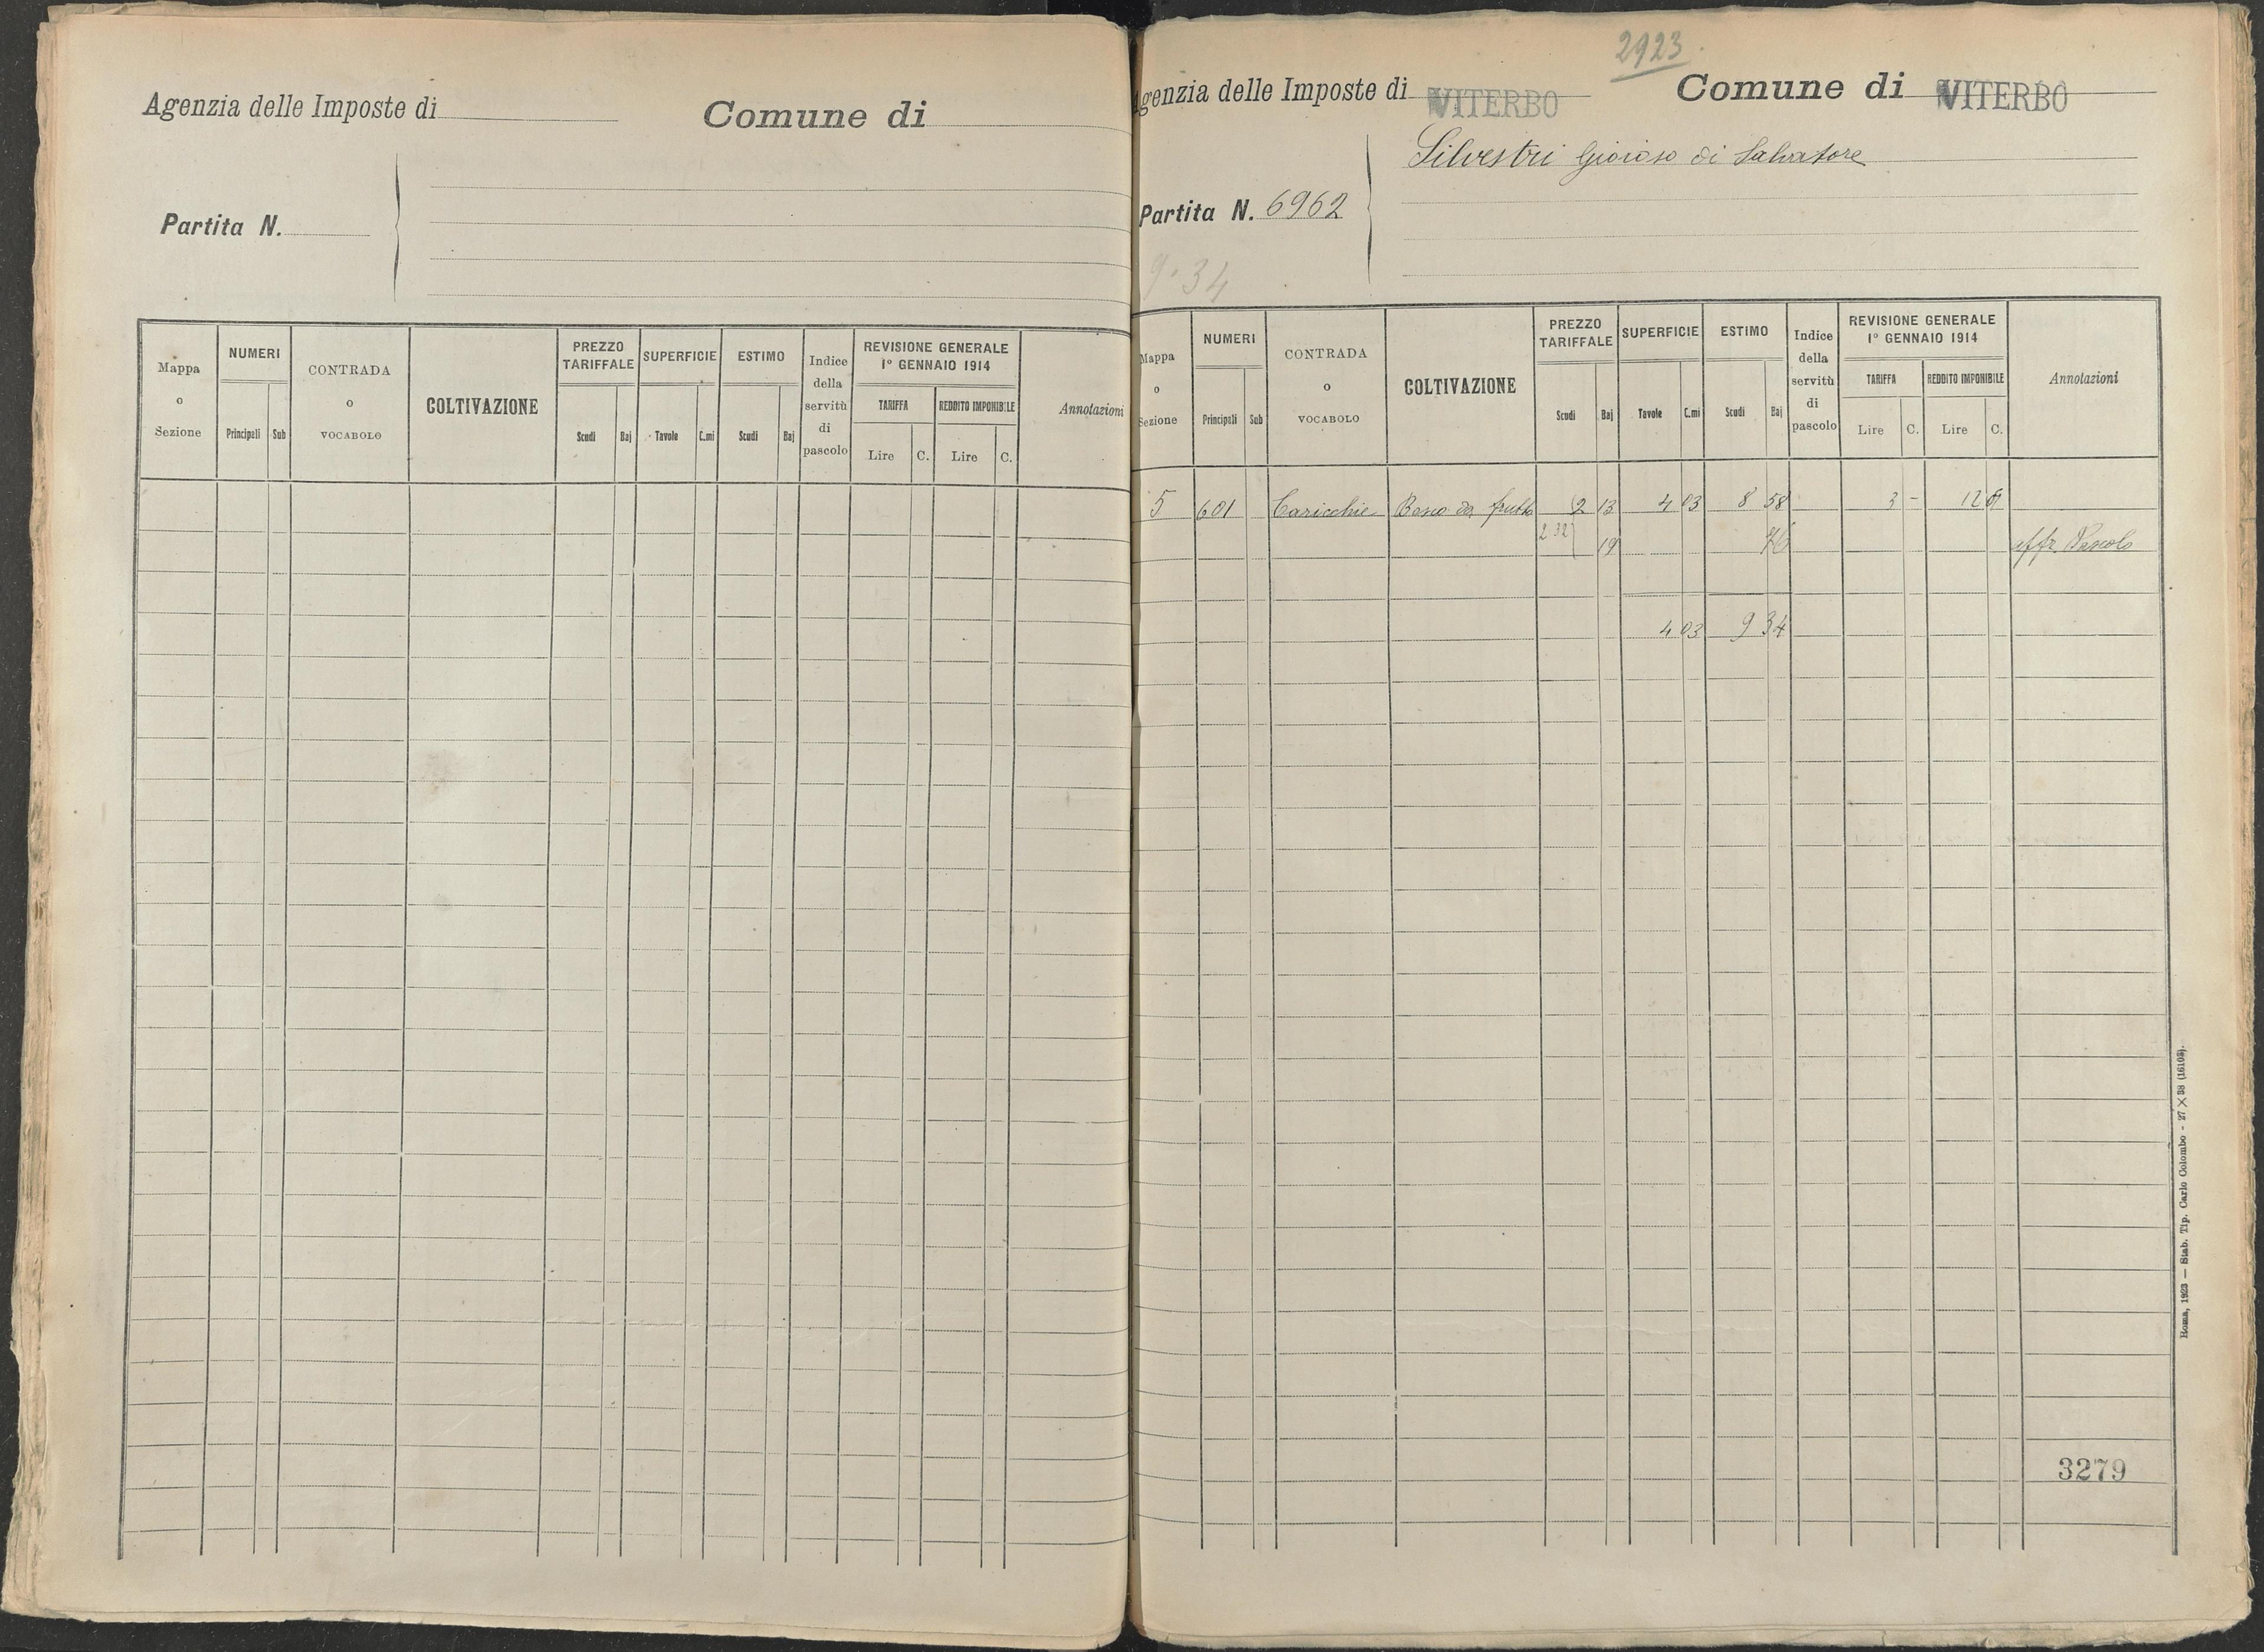 Agenzia delle Imposte di
Comune di
Partita N.
Mappa o Sezione
NUMERI
Principali Sub
CONTRADA o VOCABOLO
COLTIVAZIONE
PREZZO TARIFFALE
Scudi Baj
SUPERFICIE
Tavole C.mi
ESTIMO
Scudi Baj
Indice della servitù di pascolo
REVISIONE GENERALE
1° GENNAIO 1914
TARIFFA
Lire C.
REDDITO IMPONIBILE
Lire C.
Annotazioni
2923
Agenzia delle Imposte di VITERBO
Comune di VITERBO
Silvestri Gioioso di Salvatore
Partita N. 6962
9.34
Mappa o Sezione
NUMERI
Principali Sub
CONTRADA o VOCABOLO
COLTIVAZIONE
PREZZO TARIFFALE
Scudi Baj
SUPERFICIE
Tavole C.mi
ESTIMO
Scudi Baj
Indice della servitù di pascolo
REVISIONE GENERALE
1° GENNAIO 1914
TARIFFA
Lire C.
REDDITO IMPONIBILE
Lire C.
Annotazioni
5 601 Caricchie Bosco da frutto 2 13 4 03 8 58 3 - 12 09
2 32 19 76 affr Pascolo
4 03 9 34
3279
Roma, 1923 — Stab. Tip. Carlo Colombo - 27 × 38 (16103).